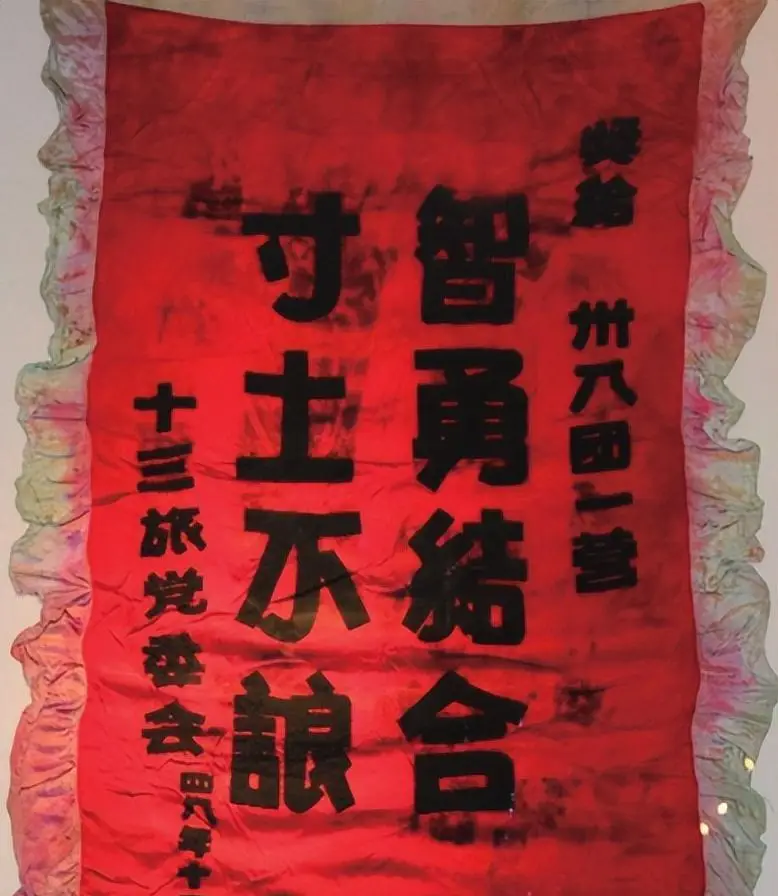 奖给 卅八团一营
智勇結合
寸土不誏
十三旅党委会
四八年十